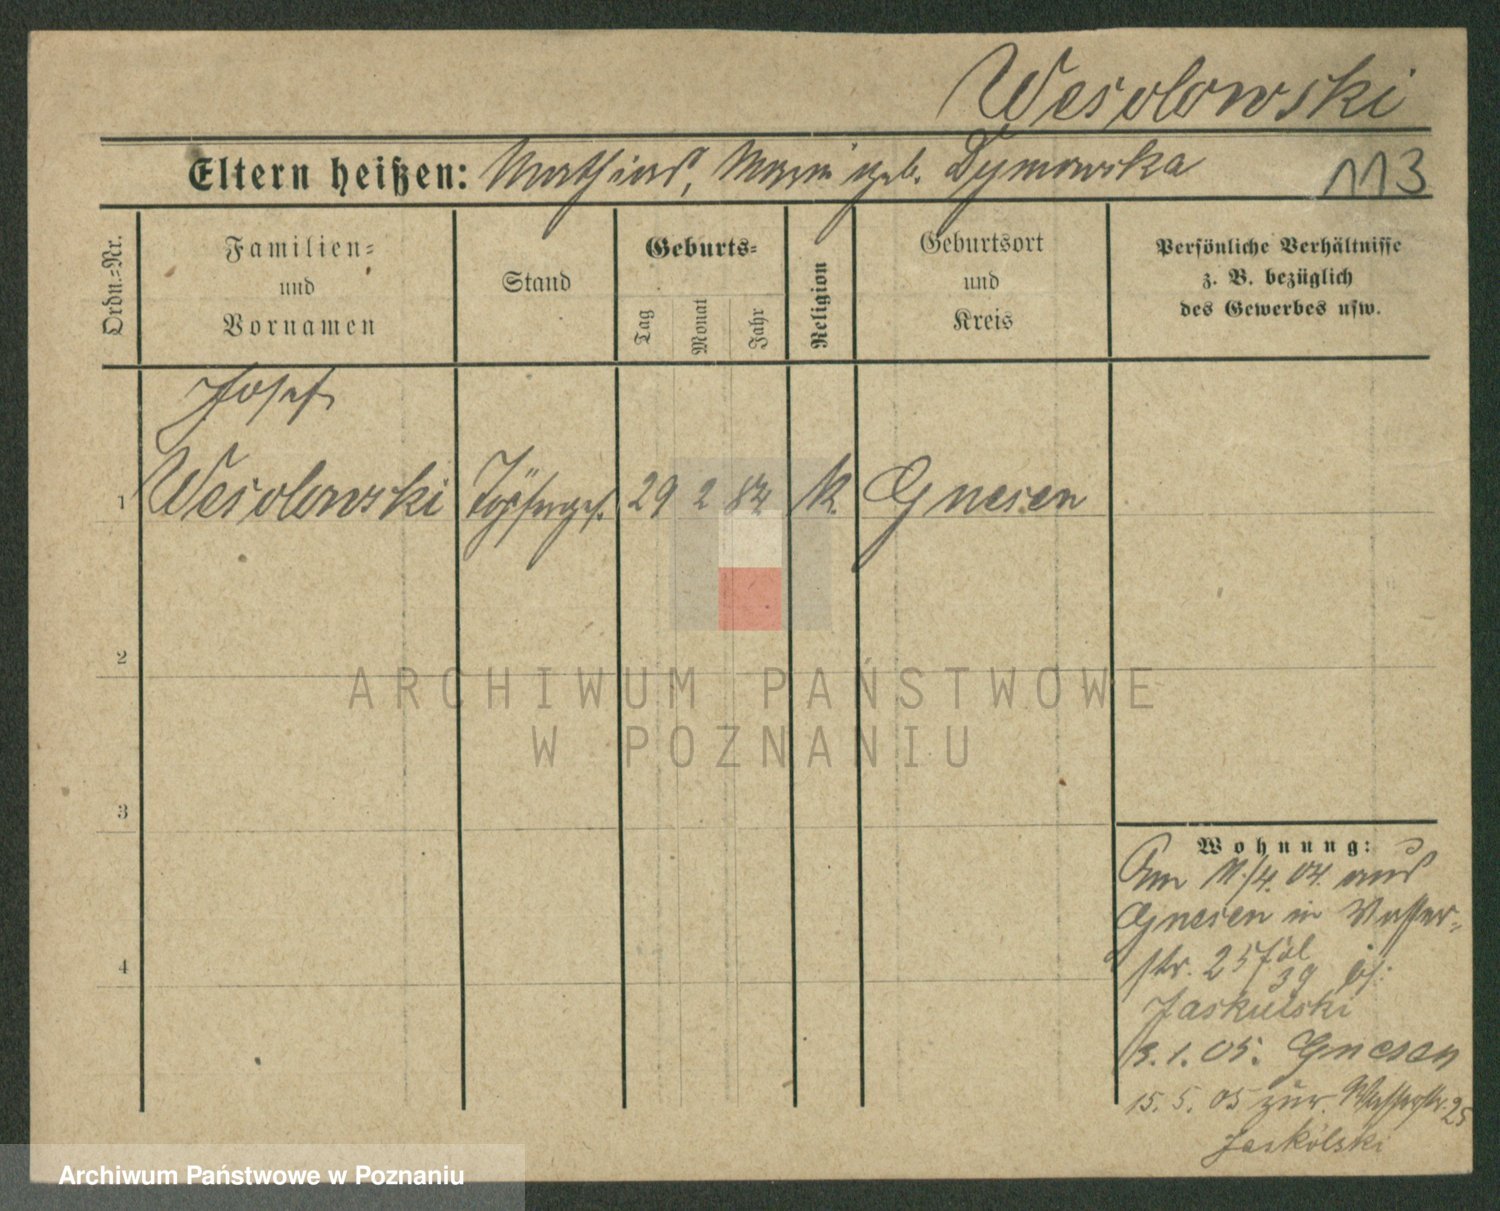 Wesolowski
Eltern heißen: Mathias, Maria geb. Dymowska
113
Ordn.=Nr.
Familien=
und
Vornamen
Stand
Geburts=
Tag
Monat
Jahr
Religion
Geburtsort
und
Kreis
Persönliche Verhältnisse
z. B. bezüglich
des Gewerbes usw.
Josef
1 Wesolowski Töpferges. 29 2 84 K. Gnesen
2
3
4
Wohnung:
Am 11./4. 04. aus
Gnesen in Wasser-
str. 25
Jaskulski
3. 1. 05. Gnesen
15. 5. 05 zur. Wasserstr. 25
Jaskólski
ARCHIWUM PAŃSTWOWE
W POZNANIU
Archiwum Państwowe w Poznaniu